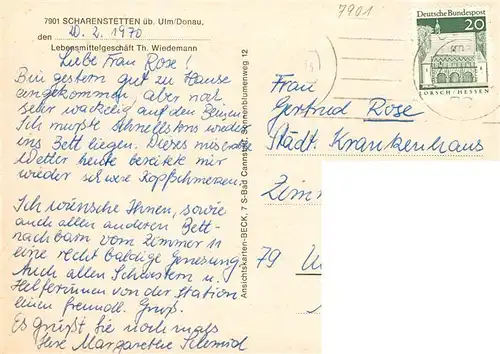 7901 SCHARENSTETTEN üb. Ulm/Donau,
den 20. 2. 1970
Lebensmittelgeschäft Th. Wiedemann
Liebe Frau Rose!
Bin gestern gut zu Hause
angekommen aber noch
sehr wackelig auf den Beinen
Ich mußte schnellstens wieder
ins Bett liegen. Dieses miserable
Wetter heute bereitet mir
wieder schwere Kopfschmerzen.
Ich wünsche Ihnen, sowie
auch allen anderen Bett-
nachbarn vom Zimmer 11
eine recht baldige Genesung
Auch allen Schwestern u.
Helferinnen von der Station
einen freundl. Gruß.
Es grüßt Sie nochmals
Ihre Margarethe Schmid
Ansichtskarten-BECK, 7 S-Bad Cannstatt, Sonnenblumenweg 12
7901
Deutsche Bundespost
20
LORSCH/HESSEN
Frau
Gertrud Rose
Städt. Krankenhaus
Zimm
79 U